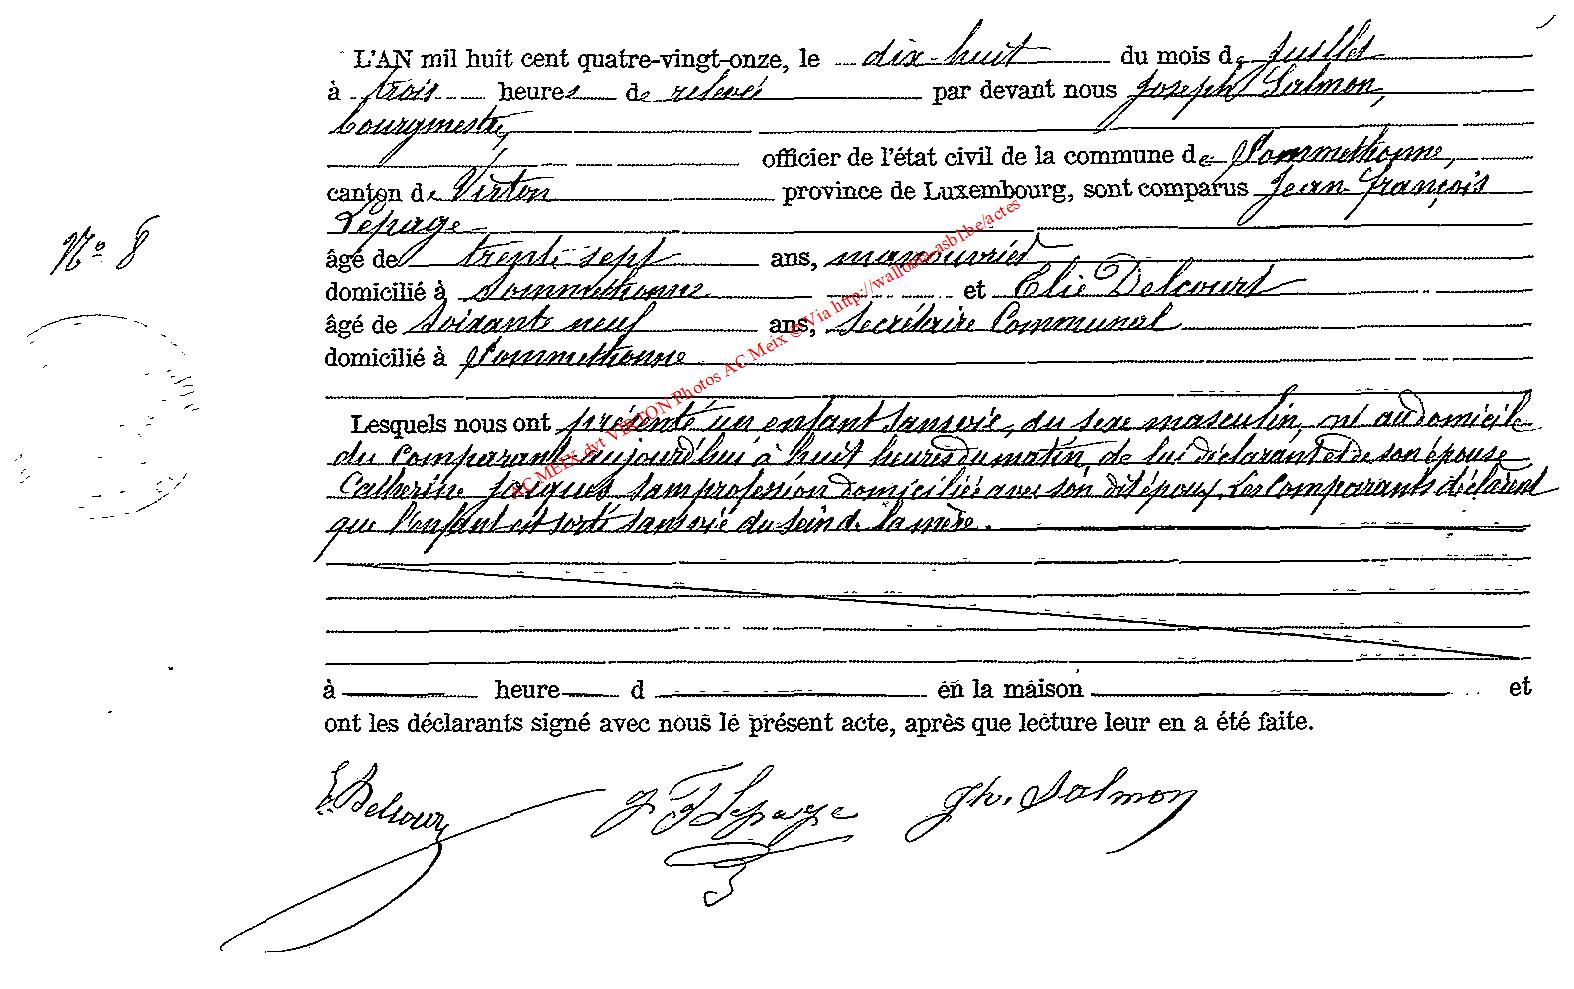 L'AN mil huit cent quatre-vingt-onze, le dix-huit du mois de Juillet
à trois heures de relevée par devant nous Joseph Salmon,
bourgmestre,
officier de l'état civil de la commune de Sommethonne,
canton de Virton province de Luxembourg, sont comparus Jean-François
Lepage
N° 8
âgé de trente-sept ans, manouvrier
domicilié à Sommethonne et Elie Delcourt
âgé de soixante neuf ans, Secrétaire Communal
domicilié à Sommethonne
Lesquels nous ont présenté un enfant sans vie, du sexe masculin, né au domicile
du Comparant aujourd'hui à huit heures du matin, de lui déclarant et de son épouse
Catherine Jacques sans profession domiciliée avec son dit époux. Les Comparants déclarent
que l'enfant est sorti sans vie du sein de la mère.
à heure d en la maison et
ont les déclarants signé avec nous le présent acte, après que lecture leur en a été faite.
E. Delcourt J F Lepage Jh. Salmon
AC MEIX dvt VIRTON Photos AC Meix © Via http://wallonia-asbl.be/actes